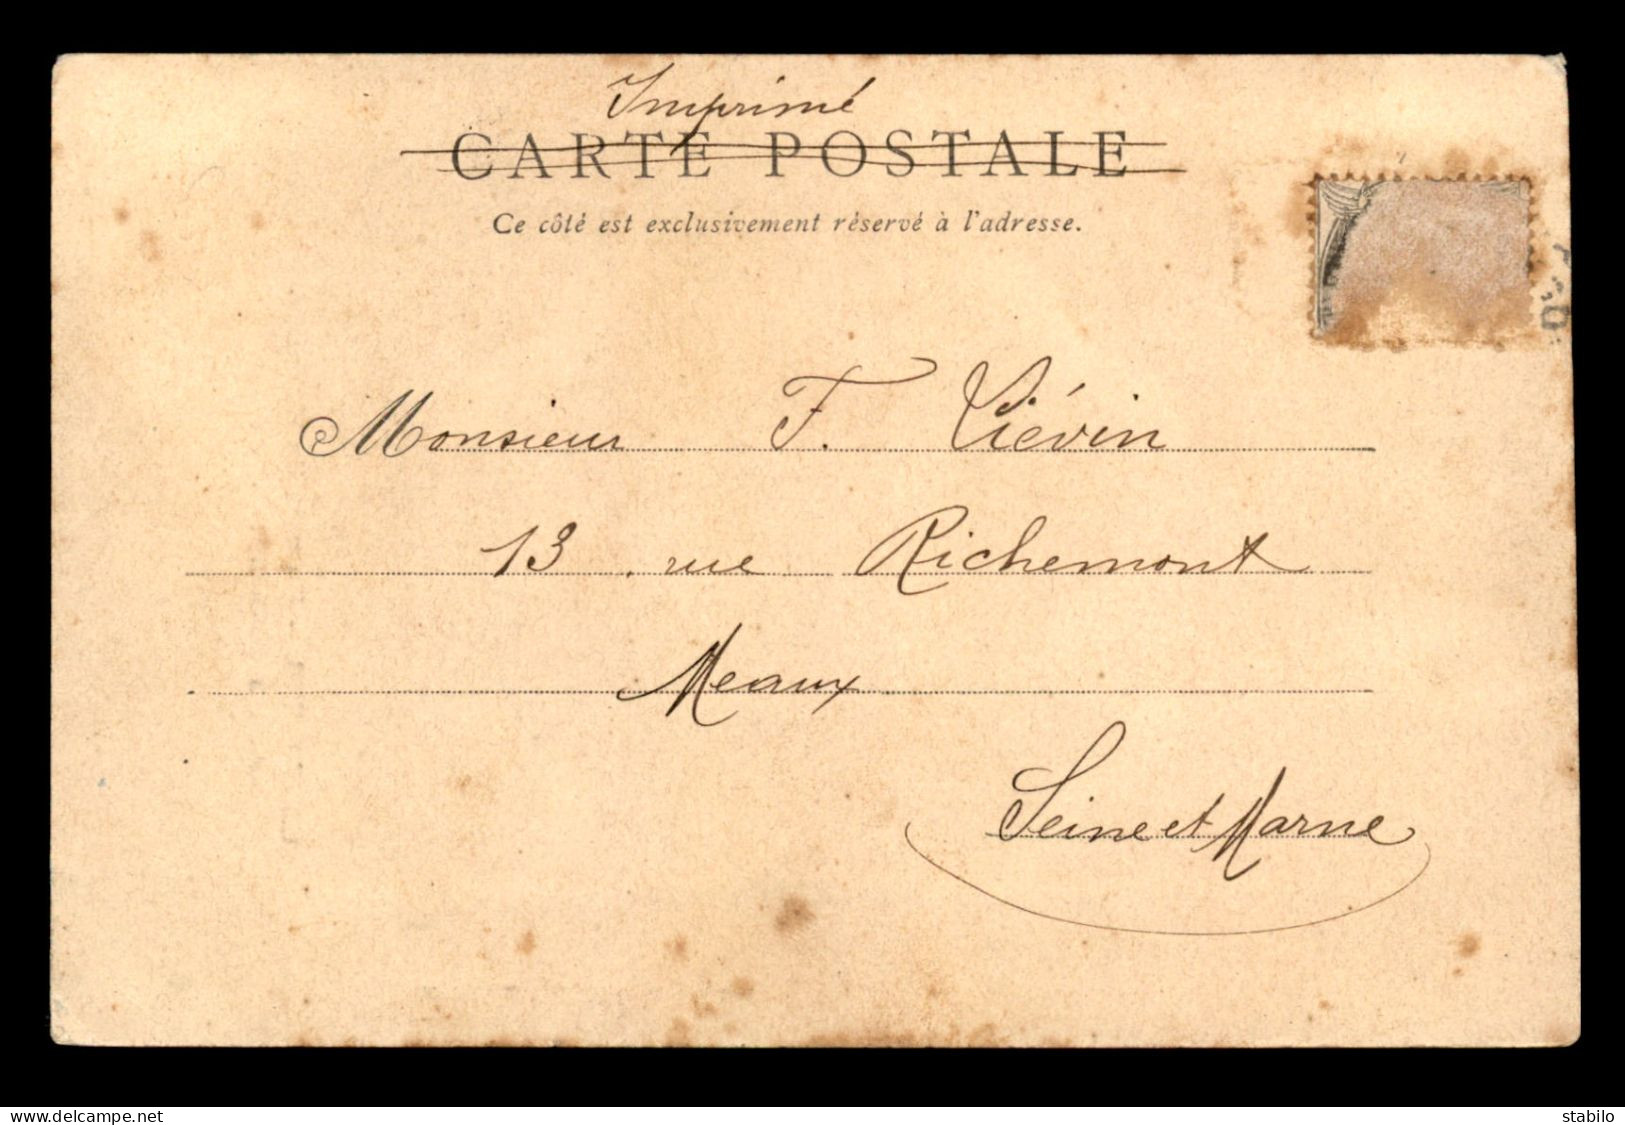 Imprimé
CARTE POSTALE
Ce côté est exclusivement réservé à l'adresse.
Monsieur F. Liévin
13, rue Richemont
Meaux
Seine et Marne
delcampe.net
stabilo